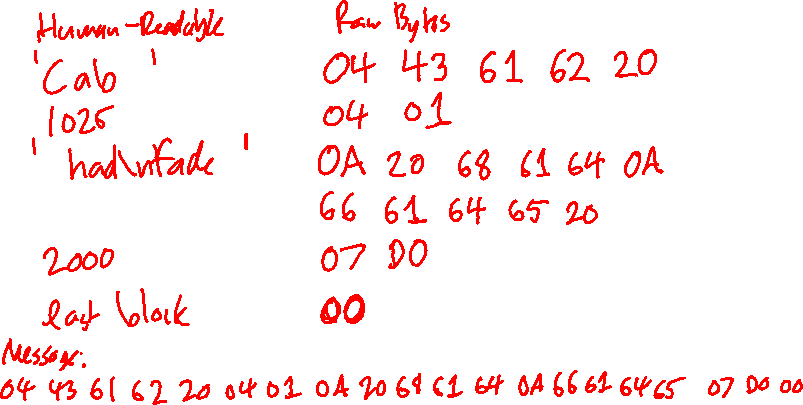 Human-Readable Raw Bytes
'Cab ' 04 43 61 62 20
1025 04 01
' had\nfade ' 0A 20 68 61 64 0A
66 61 64 65 20
2000 07 D0
last block 00
Message:
04 43 61 62 20 04 01 0A 20 68 61 64 0A 66 61 64 65 07 D0 00